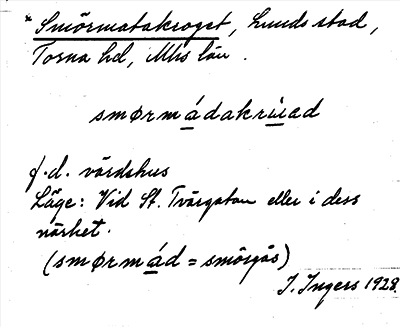 * Smörmatakroget, Lunds stad,
Torna hd, Mlhs län.
smørmádakrùəd
f.d. värdshus
Läge: Vid St. Tvärgatan eller i dess
närhet.
(smørmád = smörgås)
I. Ingers 1928.